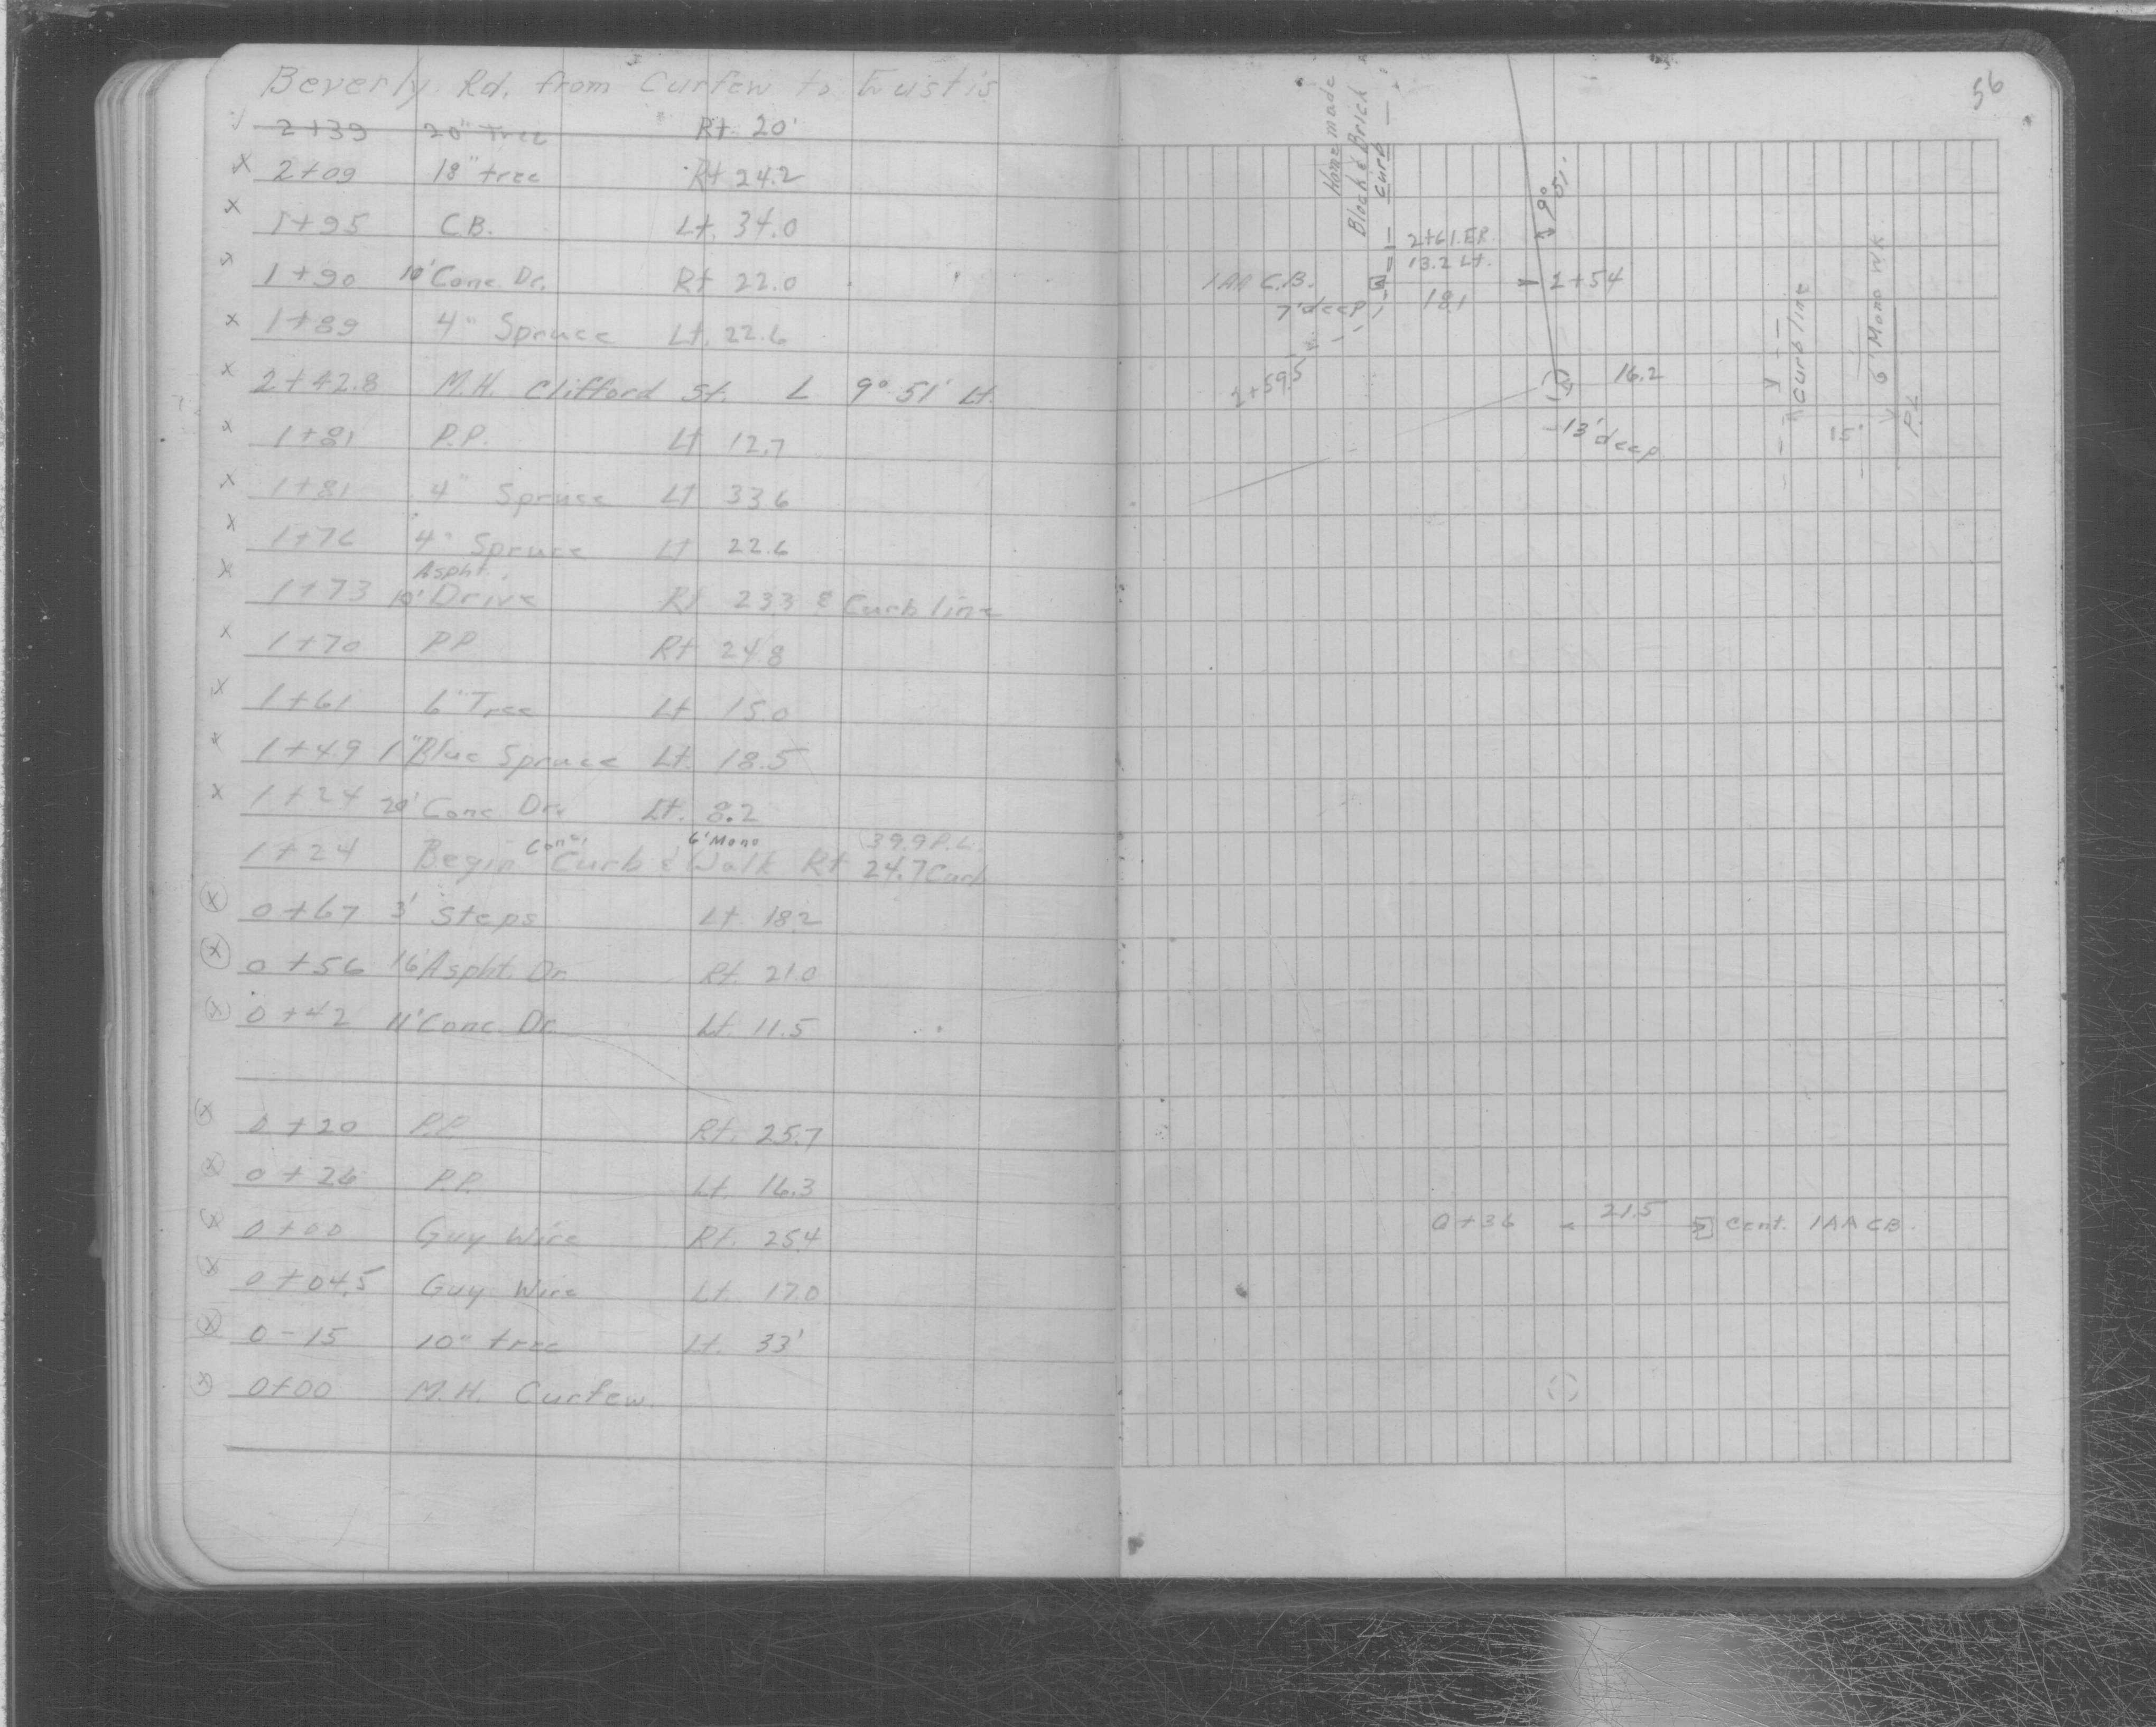 Beverly Rd. from Curfew to Eustis
2+39 20" Tree Rt. 20'
x 2+09 18" tree Rt 24.2
x 1+95 C.B. Lt. 34.0
x 1+90 10' Conc. Dr. Rt 22.0
x 1+89 4" Spruce Lt. 22.6
x 2+42.8 M.H. Clifford St. L 9° 51' Lt.
x 1+81 P.P. Lt 12.7
x 1+81 4" Spruce Lt 33.6
x 1+76 4" Spruce Lt 22.6
Aspht.
x 1+73 10' Drive Rt 23.3 & Curb line
x 1+70 P.P. Rt 24.8
x 1+61 6" Tree Lt 15.0
x 1+49 1" Blue Spruce Lt. 18.5
x 1+24 20' Conc Dr. Lt. 8.2
Conc. 6' Mono 39.9 P.L.
1+24 Begin Curb & Walk Rt 24.7 Curb
x 0+67 3' Steps Lt. 18.2
x 0+56 16' Aspht. Dr. Rt. 21.0
x 0+42 11' Conc. Dr. Lt. 11.5
x 0+20 P.P. Rt. 25.7
x 0+26 P.P. Lt. 16.3
x 0+00 Guy Wire Rt. 25.4
x 0+04.5 Guy Wire Lt 17.0
x 0-15 10" tree Lt. 33'
x 0+00 M.H. Curfew.
56
Home made
Block & Brick
curb
9° 51'
2+61. ER.
13.2 Lt.
1AA C.B.
7' deep
18.1
2+54
2+59.5
16.2
-13' deep
Curb line
6' Mono Wk
15'
P.L.
0+36 21.5 Cent. 1AA CB.